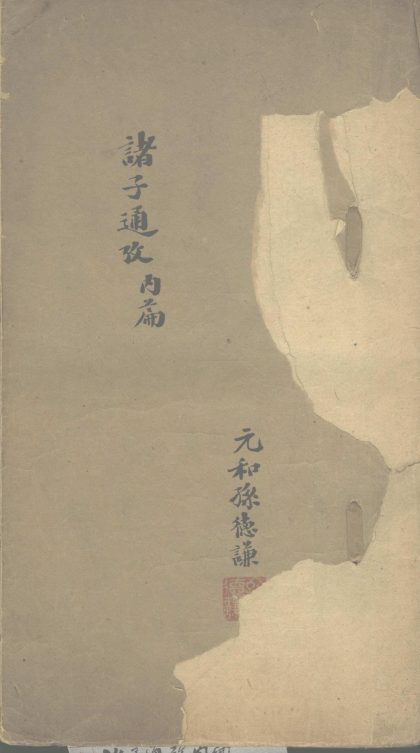 諸子通攷內篇
元和孫德謙